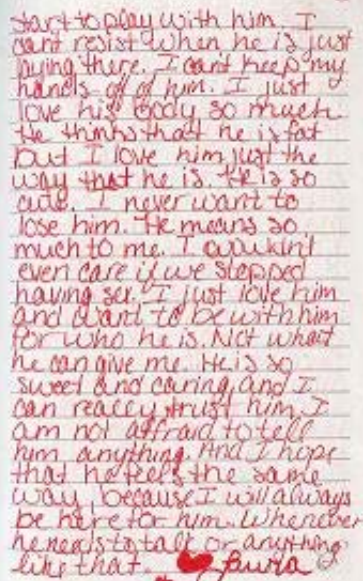 start to play with him. I
cant resist when he is just
laying there. I cant keep my
hands off of him. I just
love his body so much.
He thinks that he is fat
but I love him just the
way that he is. He is so
cute. I never want to
lose him. He means so
much to me. I wouldn't
even care if we stopped
having sex. I just love him
and want to be with him
for who he is. Not what
he can give me. He is so
sweet and caring and I
can really trust him. I
am not affraid to tell
him anything. And I hope
that he feels the same
way, because I will always
be here for him. Whenever
he needs to talk or anything
like that.